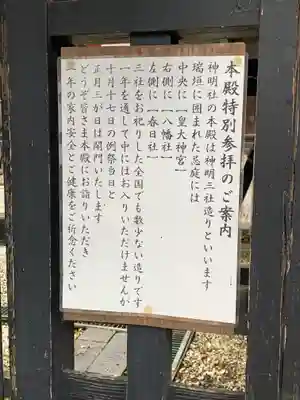 本殿特別参拝のご案内
神明社の本殿は神明三社造りといいます
瑞垣に囲まれた忌庭には
中央に【皇大神宮】
右側に【八幡社】
左側に【春日社】
三社をお祀りした全国でも数少ない造りです
一年を通して中にはお入りいただけませんが
十月十七日の例祭当日と
正月三が日は開門いたします
どうぞ皆さま本殿にお詣りいただき
年の家内安全とご健康をご祈念ください